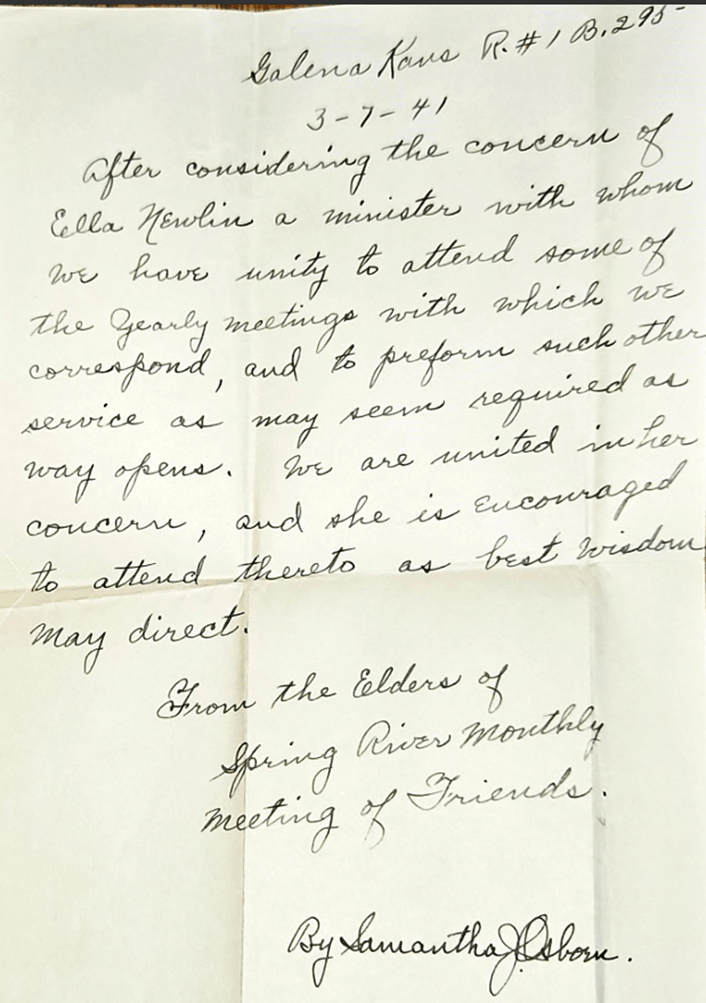 Galena Kans R. #1 B. 295
3-7-41
After considering the concern of
Ella Newlin a minister with whom
we have unity to attend some of
the Yearly meetings with which we
correspond, and to preform such other
service as may seem required as
way opens. We are united in her
concern, and she is encouraged
to attend thereto as best wisdom
may direct.
From the Elders of
Spring River Monthly
Meeting of Friends.
By Samantha J. Osborn.